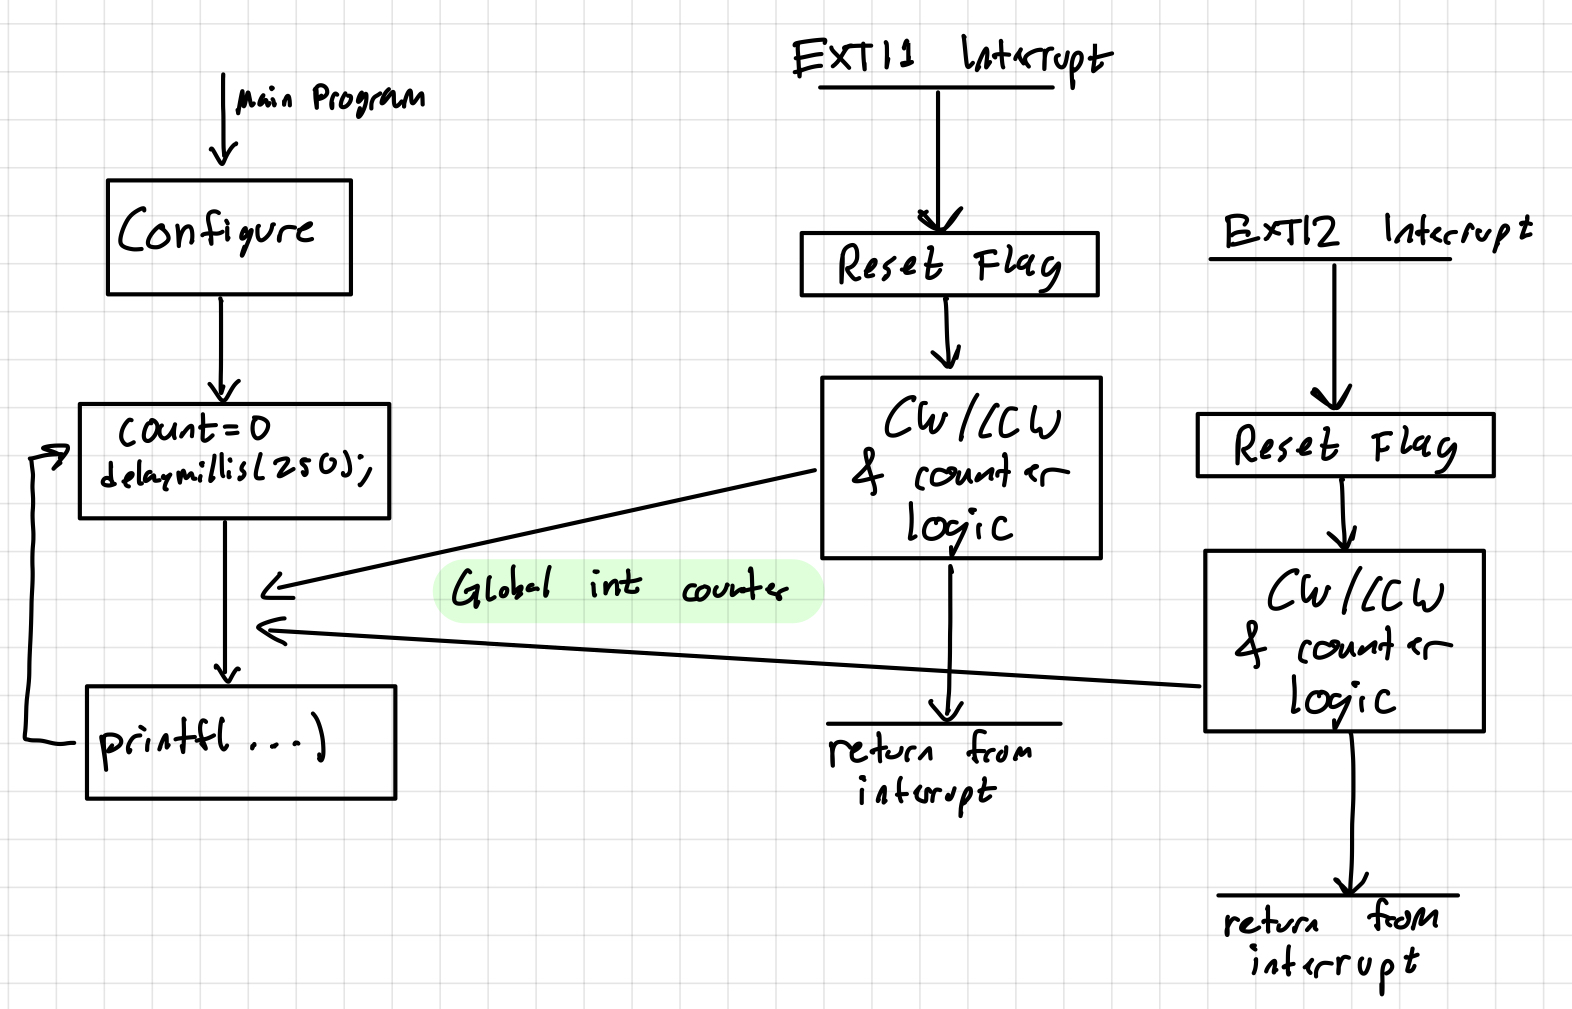 Main Program
Configure
count=0
delaymillis(250);
printf(...)
Global int counter
EXTI1 Interrupt
Reset Flag
CW/CCW
& counter
logic
return from
interrupt
EXTI2 Interrupt
Reset Flag
CW/CCW
& counter
logic
return from
interrupt